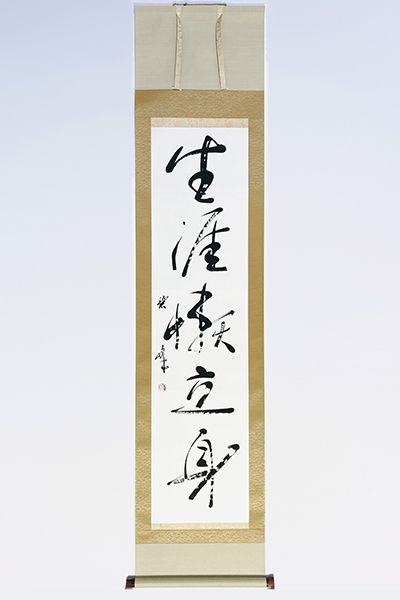 生涯懶立身